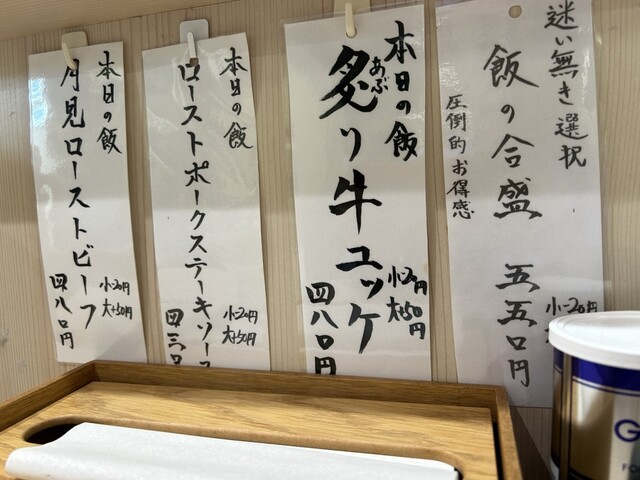 迷い無き選択
飯の合盛 五五〇円
圧倒的お得感
小-20円
本日の飯
炙り牛ユッケ
あぶ
四八〇円
小-20円
大+50円
本日の飯
ローストポークステーキソース
四三〇
小-20円
大+50円
本日の飯
月見ローストビーフ
四八〇円
小-20円
大+50円
G